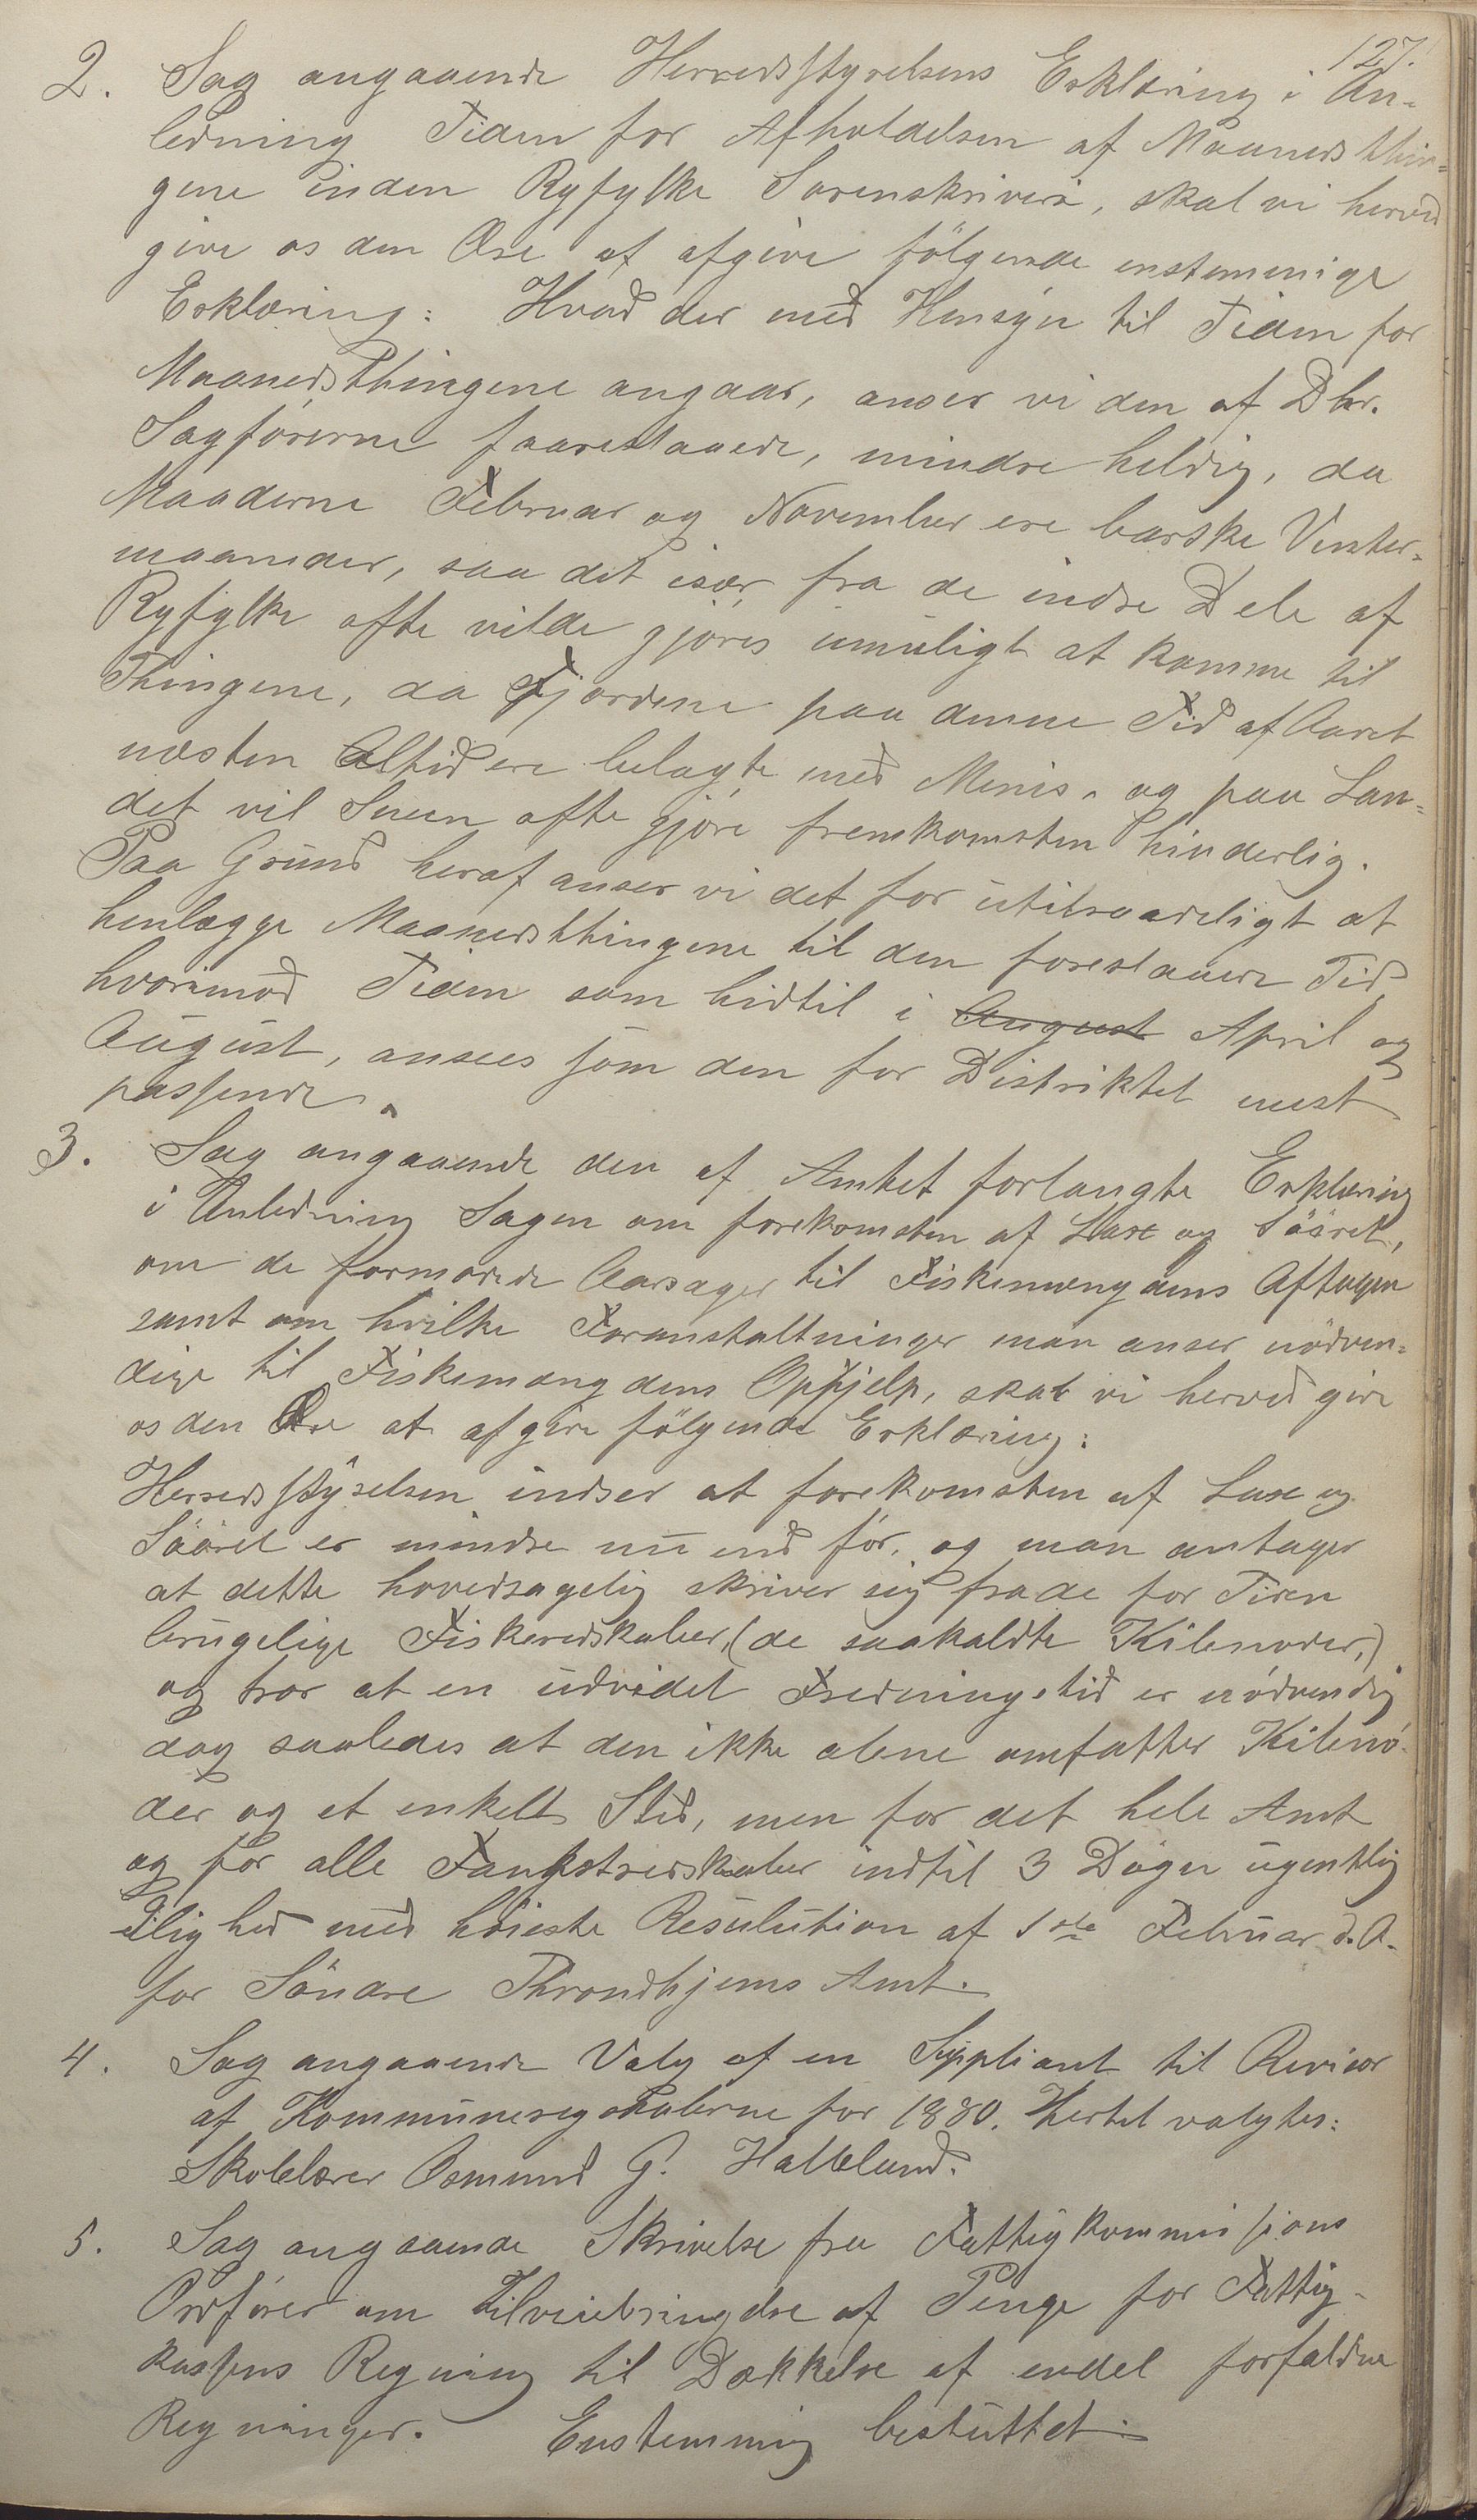 127.
2. Sag angaaende Herredsstyrelsens Erklæring i An-
ledning Tiden for Afholdelsen af Maanedsthin-
gene inden Ryfylke Sorenskriveri, skal vi herved
give os den Ære at afgive følgende enstemmige
Erklæring: Hvad der med Hensyn til Tiden for
Maanedsthingene angaar, anser vi den af Dhr.
Sagførerne faareslaaede, mindre heldig, da
Maaderne Februar og November ere barske Vinter-
maaneder, saa det især fra de indre Dele af
Ryfylke ofte vilde gjøres umuligt at komme til
Thingene, da Fjordene paa denne Tid af Aaret
næsten Altid ere belagte med Menis, og paa Lan-
det vil Sneen ofte gjøre fremkomsten hinderlig.
Paa Grund heraf anser vi det for utilraadeligt at
henlægge Maanedsthingene til den foreslaaede Tid,
hvorimod Tiden som hidtil i August April og
August, ansees som den for Distriktet mest
passende.
3. Sag angaaende den af Amtet forlangte Erklæring
i Anledning Sagen om forekomsten af Lax og Søøret,
om de formodede Aarsager til Fiskemængdens Aftagen
samt om hvilke Foranstaltninger man anser nødven-
dige til Fiskemængdens Ophjelp, skal vi herved give
os den Ære at afgive følgende Erklæring:
Herredsstyrelsen indser at forekomsten af Lax og
Søøret er mindre nu end før, og man antager
at dette hovedsagelig skriver sig fra de for Tiden
brugelige Fiskeredskaber, (de saakaldte Kilenoder,)
og tror at en udvidet Fredningstid er nødvendig
dog saaledes at den ikke alene omfatter Kileno-
der og et enkelt Sted, men for det hele Amt
og for alle Fangstredskaber indtil 3 Døgn ugentlig
i Lighed med høieste Resulution af 1ste Februar d. A.
for Søndre Throndhjems Amt.
4. Sag angaaende Valg af en Suppliant til Revisor
af Kommuneregskaberne for 1880. Hertil valgtes:
Skolelærer Osmund G. Halleland.
5. Sag angaaende Skrivelse fra Fattigkommissions
Ordfører om Tilveiebringelse af Penge for Fattig-
kassens Regning til Dækkelse af endel forfaldne
Regninger. Enstemmig besluttet.